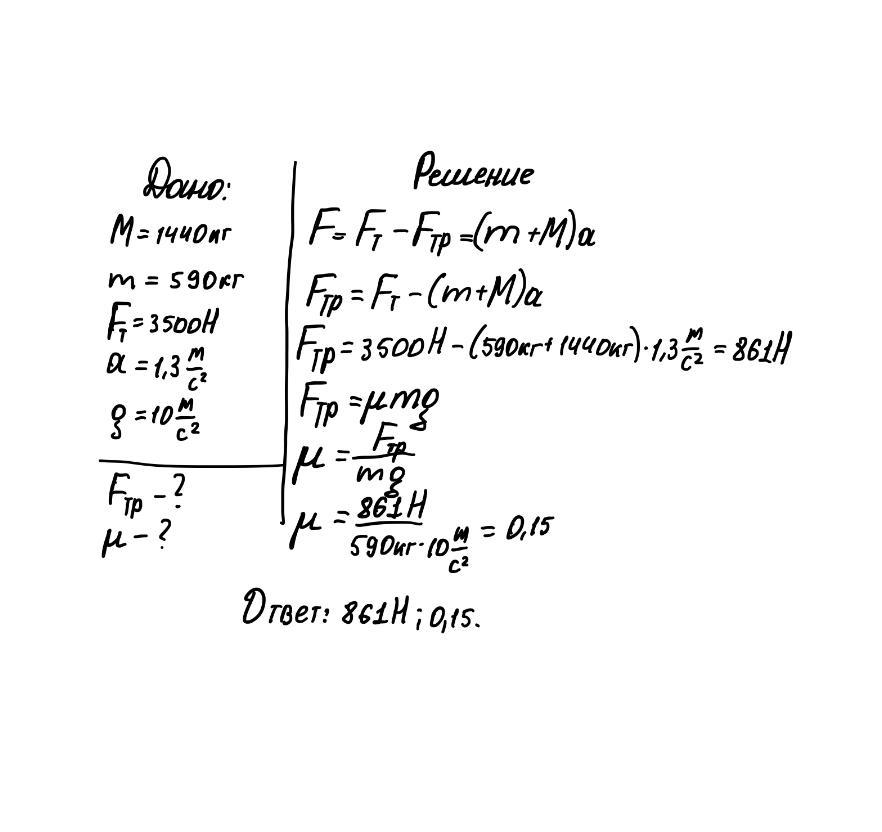 Дано:
M = 1440кг
m = 590кг
Fт = 3500Н
a = 1,3 м/с²
g = 10 м/с²
Fтр - ?
μ - ?
Решение
F = Fт - Fтр = (m + M)a
Fтр = Fт - (m + M)a
Fтр = 3500Н - (590кг + 1440кг) · 1,3 м/с² = 861Н
Fтр = μmg
μ = Fтр/mg
μ = 861Н/590кг · 10 м/с² = 0,15
Ответ: 861Н; 0,15.